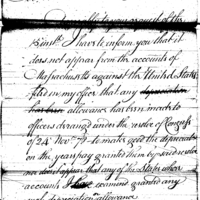 of the
15 inst. I have to inform you that it
does not appear from the accounts of
Massachusetts against the United States
filed in my office that any depreciation
has been allowance has been made to
officers deranged under the resolve of Congress
of 24 Nov. to make good the depreciation
on the years pay granted them by said resolve
nor does it appear that any of the States whose
accounts I have examined granted any
such depreciation allowance